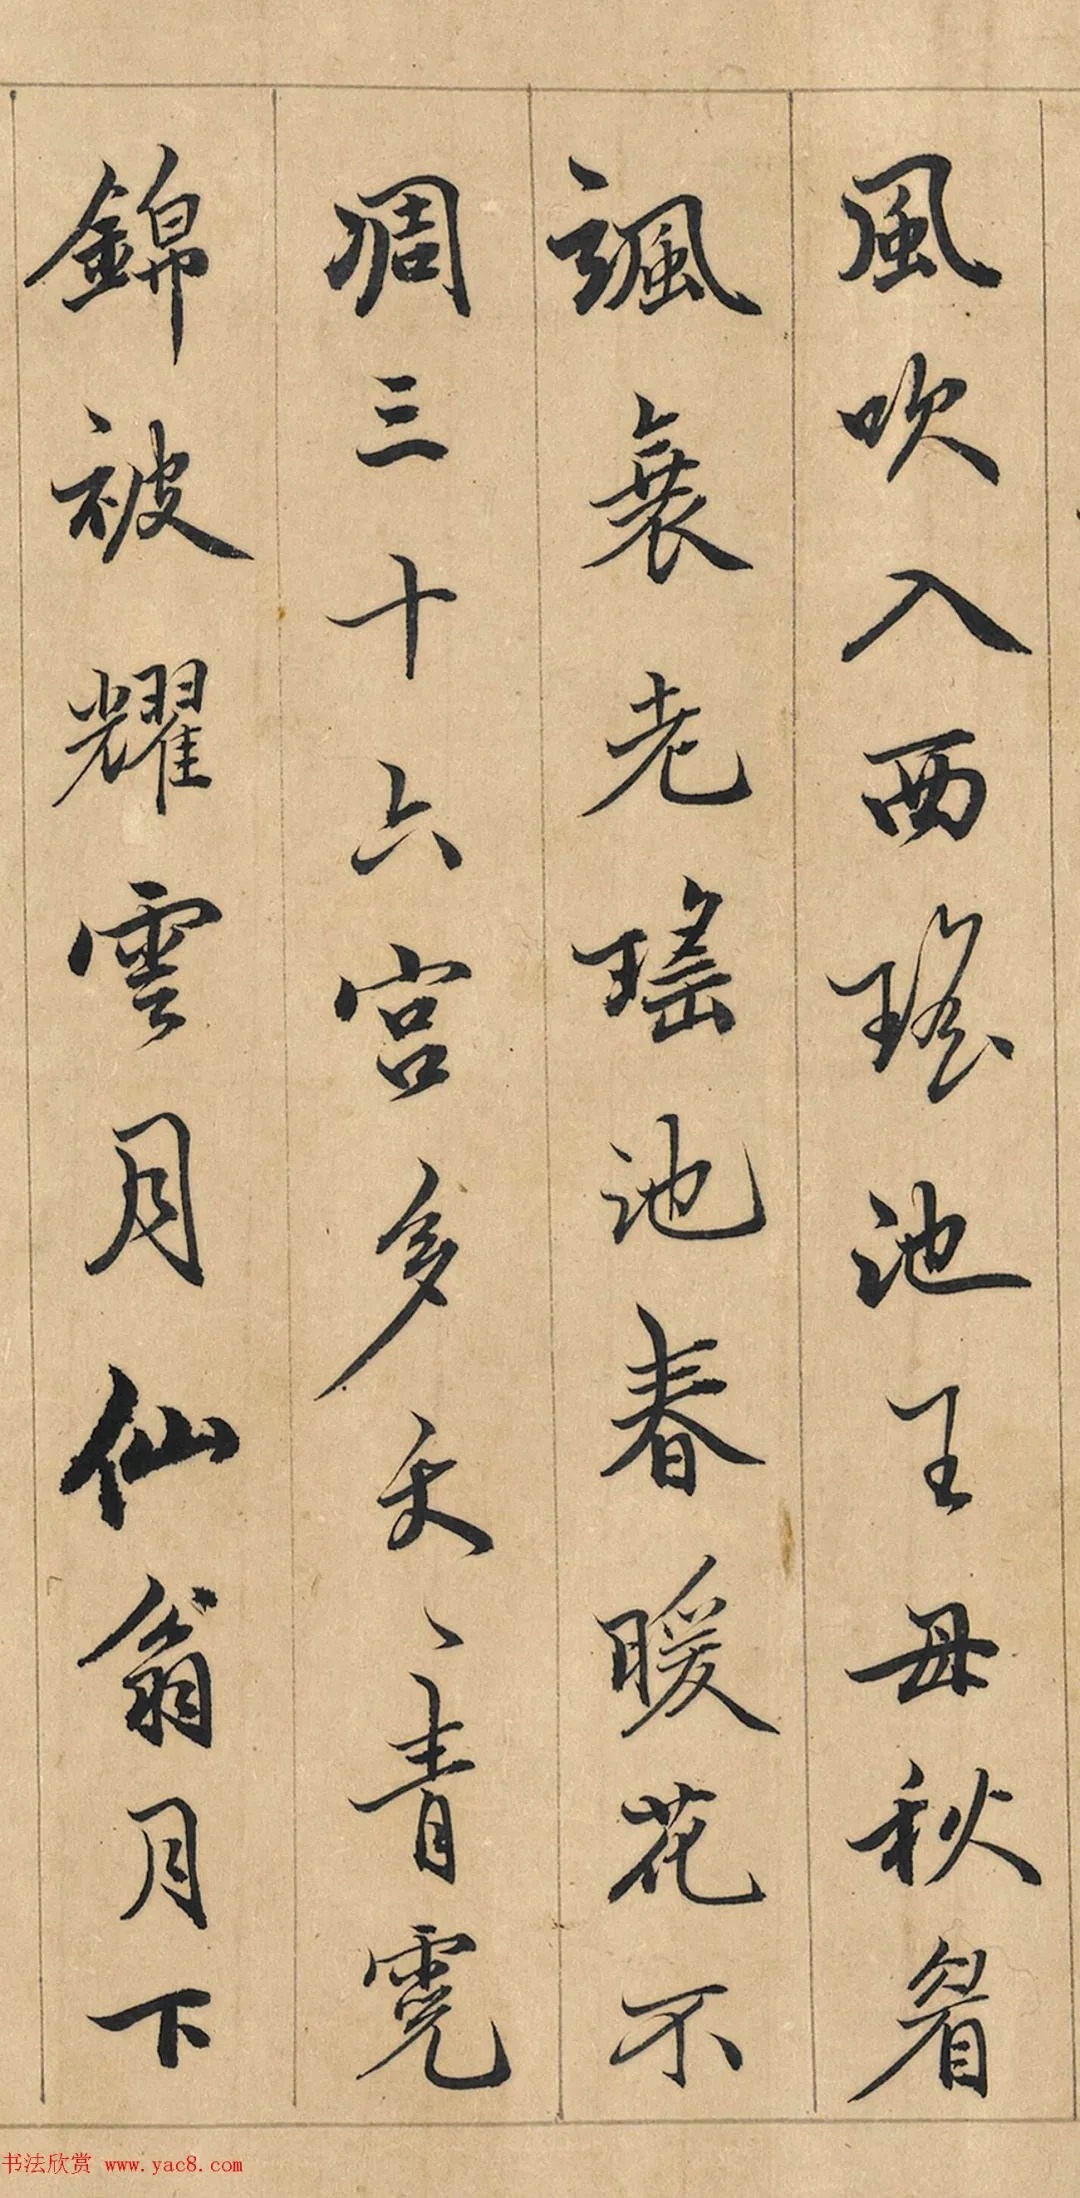 風吹入西瑤池王母秋眉
颯衰老瑤池春暖花不
凋三十六宮多夭、青霓
錦被耀雲月仙翁月下
书法欣赏 www.yac8.com